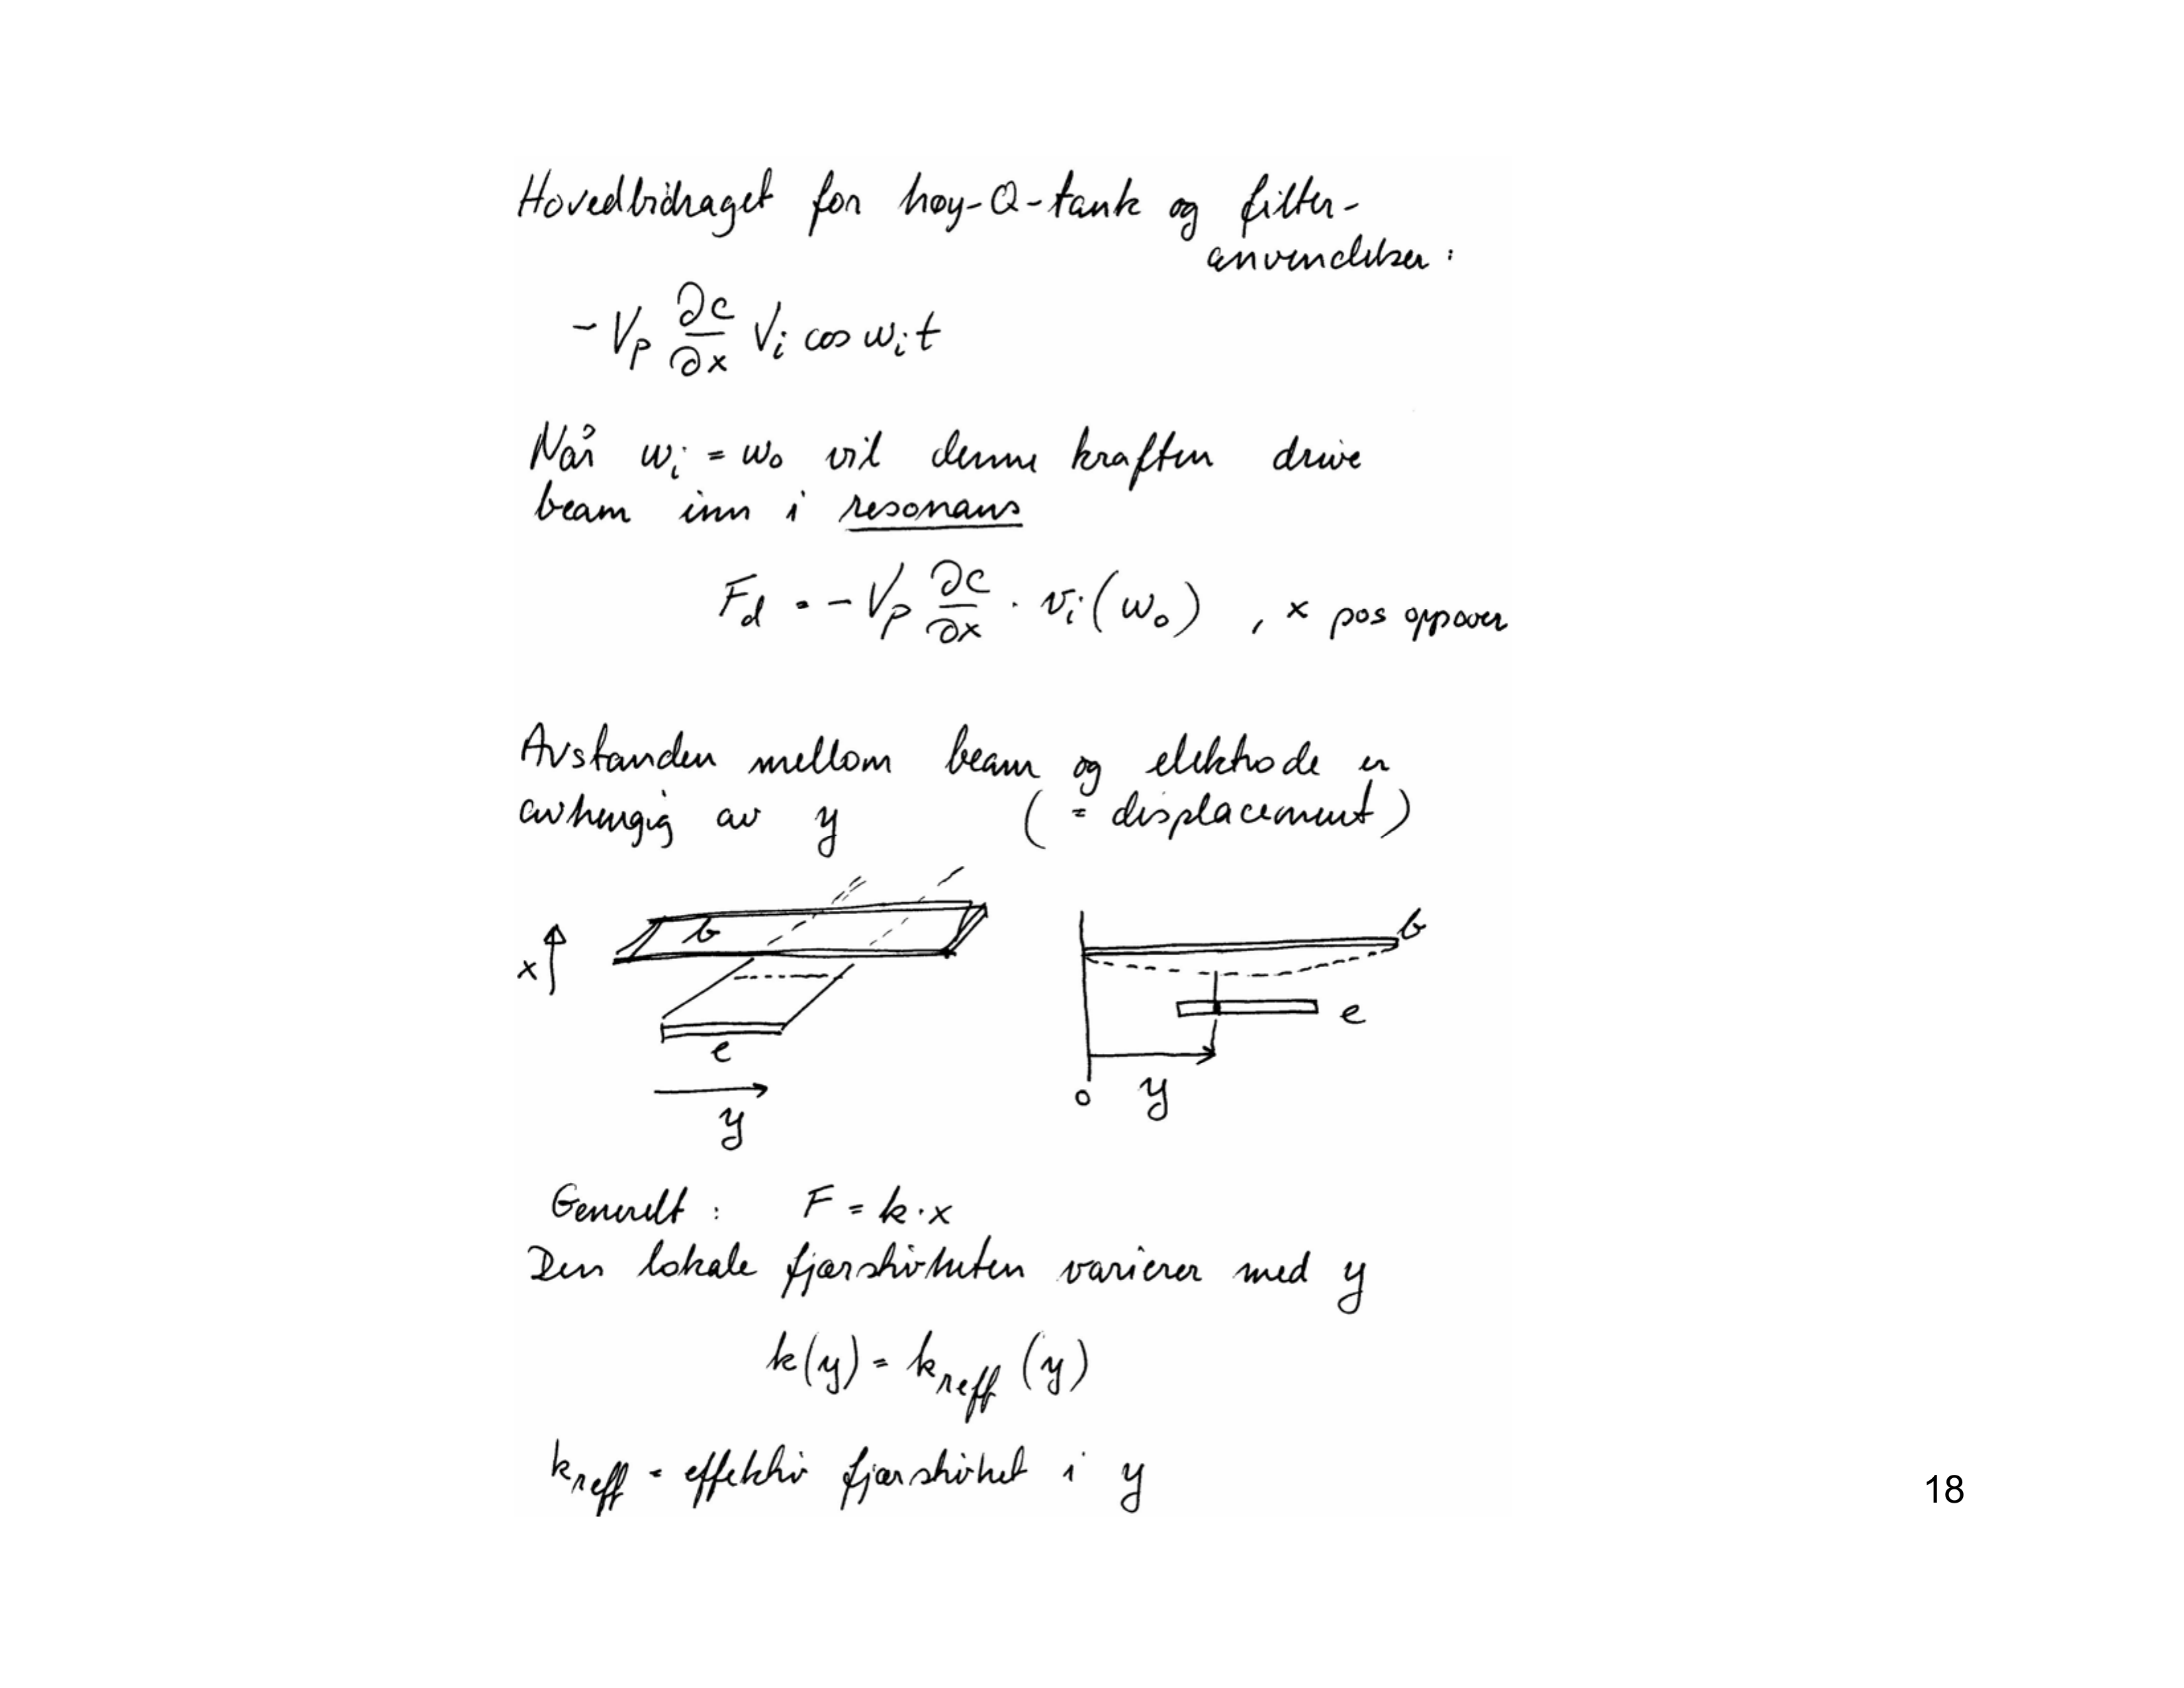 Hovedbidraget for høy-Q-tank og filter-
anvendelser :
- Vp ∂C/∂x Vi cos ωi t
Når ωi = ω0 vil denne kraften drive
beam inn i resonans
Fd = - Vp ∂C/∂x · vi (ω0) , x pos oppover
Avstanden mellom beam og elektrode er
avhengig av y ( = displacement )
x b e y
b e 0 y
Generelt : F = k · x
Den lokale fjærstivheten varierer med y
k(y) = kreff (y)
kreff = effektiv fjærstivhet i y
18